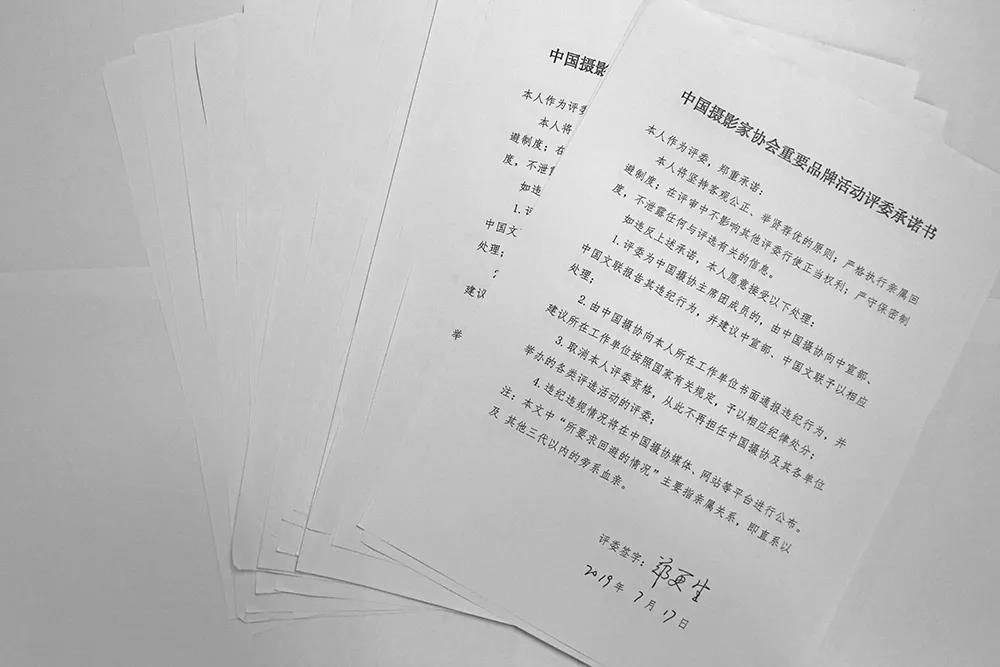 中国摄影
本人作为评
本人将
避制度；在
度，不泄
如违
1.
中国文
处理；
建议
举
中国摄影家协会重要品牌活动评委承诺书
本人作为评委，郑重承诺：
本人将坚持客观公正、举贤荐优的原则；严格执行亲属回
避制度；在评审中不影响其他评委行使正当权利；严守保密制
度，不泄露任何与评选有关的信息。
如违反上述承诺，本人愿意接受以下处理：
1.评委为中国摄协主席团成员的，由中国摄协向中宣部、
中国文联报告其违纪行为，并建议中宣部、中国文联予以相应
处理；
2.由中国摄协向本人所在工作单位书面通报违纪行为，并
建议所在工作单位按照国家有关规定，予以相应纪律处分；
3.取消本人评委资格，从此不再担任中国摄协及其各单位
举办的各类评选活动的评委；
4.违纪违规情况将在中国摄协媒体、网站等平台进行公布。
注：本文中“所要求回避的情况”主要指亲属关系，即直系以
及 其他三代以内的旁系血亲。
评委签字：郑更生
2019年 7月 17日